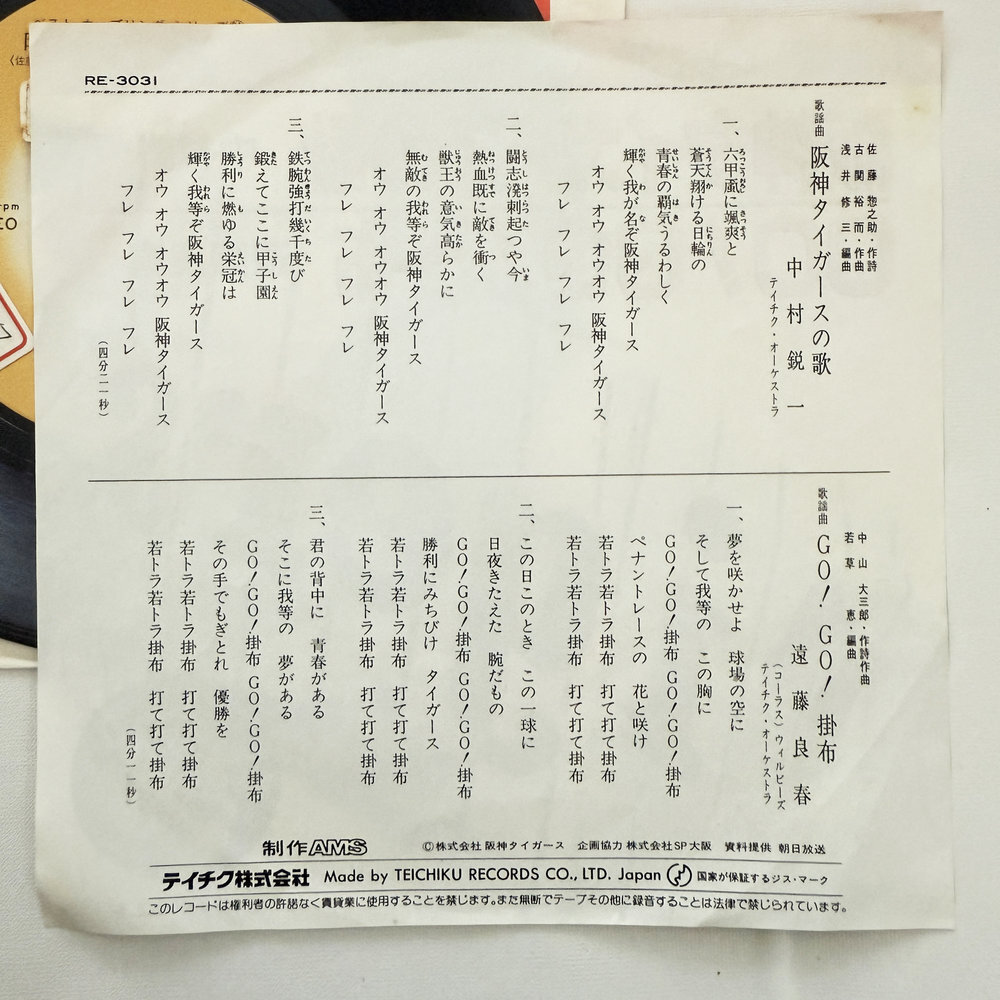 RE-3031
歌謡曲 阪神タイガースの歌
佐藤惣之助・作詩
古関裕而・作曲
浅井修三・編曲
中村鋭一
テイチク・オーケストラ
一、六甲颪に颯爽と
蒼天翔ける日輪の
青春の覇気うるわしく
輝く我が名ぞ阪神タイガース
オウ オウ オウオウ 阪神タイガース
フレ フレ フレ フレ
二、闘志溌刺起つや今
熱血既に敵を衝く
獣王の意気高らかに
無敵の我等ぞ阪神タイガース
オウ オウ オウオウ 阪神タイガース
フレ フレ フレ フレ
三、鉄腕強打幾千度び
鍛えてここに甲子園
勝利に燃ゆる栄冠は
輝く我等ぞ阪神タイガース
オウ オウ オウオウ 阪神タイガース
フレ フレ フレ フレ
(四分二一秒)
歌謡曲 GO!GO!掛布
中山大三郎・作詩作曲
若草恵・編曲
遠藤良春
(コーラス)ウィルビーズ
テイチク・オーケストラ
一、夢を咲かせよ 球場の空に
そして我等の この胸に
GO!GO!掛布 GO!GO!掛布
ペナントレースの 花と咲け
若トラ若トラ掛布 打て打て掛布
若トラ若トラ掛布 打て打て掛布
二、この日このとき この一球に
日夜きたえた 腕だもの
GO!GO!掛布 GO!GO!掛布
勝利にみちびけ タイガース
若トラ若トラ掛布 打て打て掛布
若トラ若トラ掛布 打て打て掛布
三、君の背中に 青春がある
そこに我等の 夢がある
GO!GO!掛布 GO!GO!掛布
その手でもぎとれ 優勝を
若トラ若トラ掛布 打て打て掛布
若トラ若トラ掛布 打て打て掛布
(四分一一秒)
制作AMS ©株式会社阪神タイガース 企画協力 株式会社SP大阪 資料提供 朝日放送
テイチク株式会社 Made by TEICHIKU RECORDS CO., LTD. Japan 国家が保証するジス・マーク
このレコードは権利者の許諾なく賃貸業に使用することを禁じます。また無断でテープその他に録音することは法律で禁じられています。